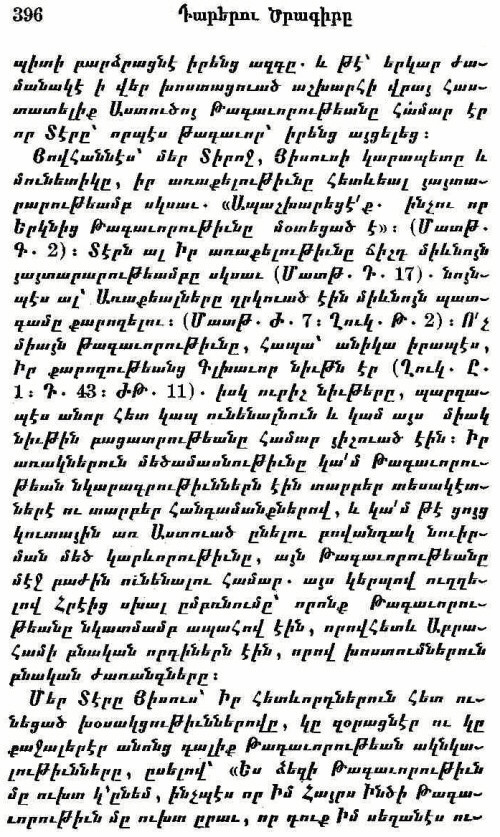 396 Դարերու Ծրագիրը
պիտի բարձրացնէ իրենց ազգը. և թէ՝ երկար ժա-
մանակէ ի վեր խոստացուած աշխարհի վրայ հաս-
տատելիք Աստուծոյ Թագաւորութեանը համար էր
որ Տէրը՝ որպէս Թագաւոր՝ իրենց այցելեց։
Յովհաննէս՝ մեր Տիրոջ, Յիսուսի կարապետը և
մունետիկը, իր առաքելութիւնը հետևեալ յայտա-
րարութեամբ սկսաւ. «Ապաշխարեցէ՛ք. ինչու որ
Երկնից Թագաւորութիւնը մօտեցած է»։ (Մատթ.
Գ. 2)։ Տէրն ալ Իր առաքելութիւնը ճիշդ միևնոյն
յայտարարութեամբը սկսաւ (Մատթ. Դ. 17). նոյն-
պէս ալ՝ Առաքեալները ղրկուած էին միևնոյն պատ-
գամը քարոզելու։ (Մատթ. Ժ. 7։ Ղուկ. Թ. 2)։ Ո՛չ
միայն Թագաւորութիւնը, հապա՝ անիկա իրապէս,
Իր քարոզութեանց Գլխաւոր նիւթն էր (Ղուկ. Ը.
1։ Դ. 43։ ԺԹ. 11). իսկ ուրիշ նիւթերը, պարզա-
պէս անոր հետ կապ ունենալնուն և կամ այս միակ
նիւթին բացատրութեանը համար յիշուած էին։ Իր
առակներուն մեծամասնութիւնը կա՛մ Թագաւորու-
թեան նկարագրութիւններն էին տարբեր տեսակէտ-
ներէ ու տարբեր հանգամանքներով, և կա՛մ թէ ցոյց
կուտային առ Աստուած ընելու բովանդակ նուիր-
ման մեծ կարևորութիւնը, այն Թագաւորութեանը
մէջ բաժին ունենալու համար. այս կերպով ուղղե-
լով Հրէից սխալ ըմբռնումը՝ որոնք Թագաւորու-
թեանը նկատմամբ ապահով էին, որովհետև Աբրա-
համի բնական որդիներն էին, որով խոստումներուն
բնական ժառանգները։
Մեր Տէրը Յիսուս՝ Իր հետևորդներուն հետ ու-
նեցած խօսակցութիւններովը, կը զօրացնէր ու կը
քաջալերէր անոնց գալիք Թագաւորութեան ակնկա-
լութիւնները, ըսելով՝ «Ես ձեզի Թագաւորութիւն
մը ուխտ կ՚ընեմ, ինչպէս որ Իմ Հայրս Ինծի Թագա-
ւորութիւն մը ուխտ ըրաւ, որ դուք Իմ սեղանէս ու-